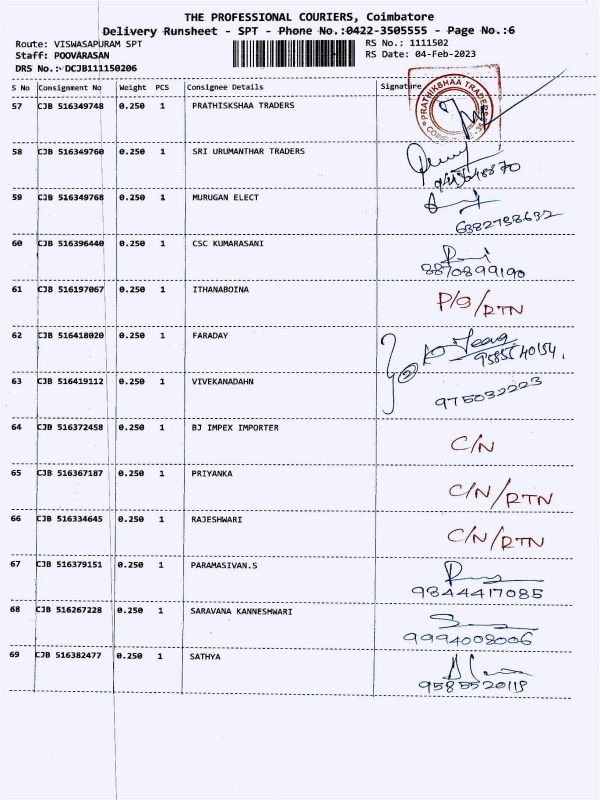 THE PROFESSIONAL COURIERS, Coimbatore
Delivery Runsheet - SPT - Phone No.:0422-3505555 - Page No.:6
Route: VISWASAPURAM SPT
RS No.: 1111502
Staff: POOVARASAN
RS Date: 04-Feb-2023
DRS No.:- DCJB111150206
S No Consignment No Weight PCS Consignee Details Signature
57 CJB 516349748 0.250 1 PRATHISKSHAA TRADERS
PRATHIKSHAA TRADERS
58 CJB 516349760 0.250 1 SRI URUMANTHAR TRADERS
59 CJB 516349768 0.250 1 MURUGAN ELECT
6382798632
60 CJB 516396440 0.250 1 CSC KUMARASANI
8870899190
61 CJB 516197067 0.250 1 ITHANABOINA P/O/RTN
62 CJB 516418020 0.250 1 FARADAY
9585540154.
63 CJB 516419112 0.250 1 VIVEKANADAHN 975032223
64 CJB 516372458 0.250 1 BJ IMPEX IMPORTER C/N
65 CJB 516367187 0.250 1 PRIYANKA C/N/RTN
66 CJB 516334645 0.250 1 RAJESHWARI C/N/RTN
67 CJB 516379151 0.250 1 PARAMASIVAN.S
9344417085
68 CJB 516267228 0.250 1 SARAVANA KANNESHWARI
9994008006
69 CJB 516382477 0.250 1 SATHYA
9585520119